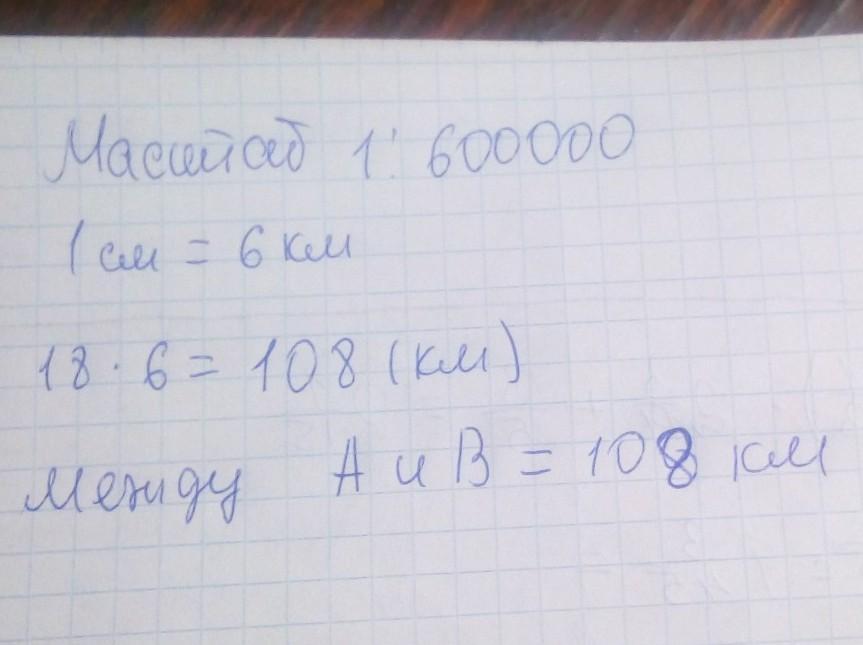 Масштаб 1:600000
1 см = 6 км
18 · 6 = 108 (км)
Между А и В = 108 км